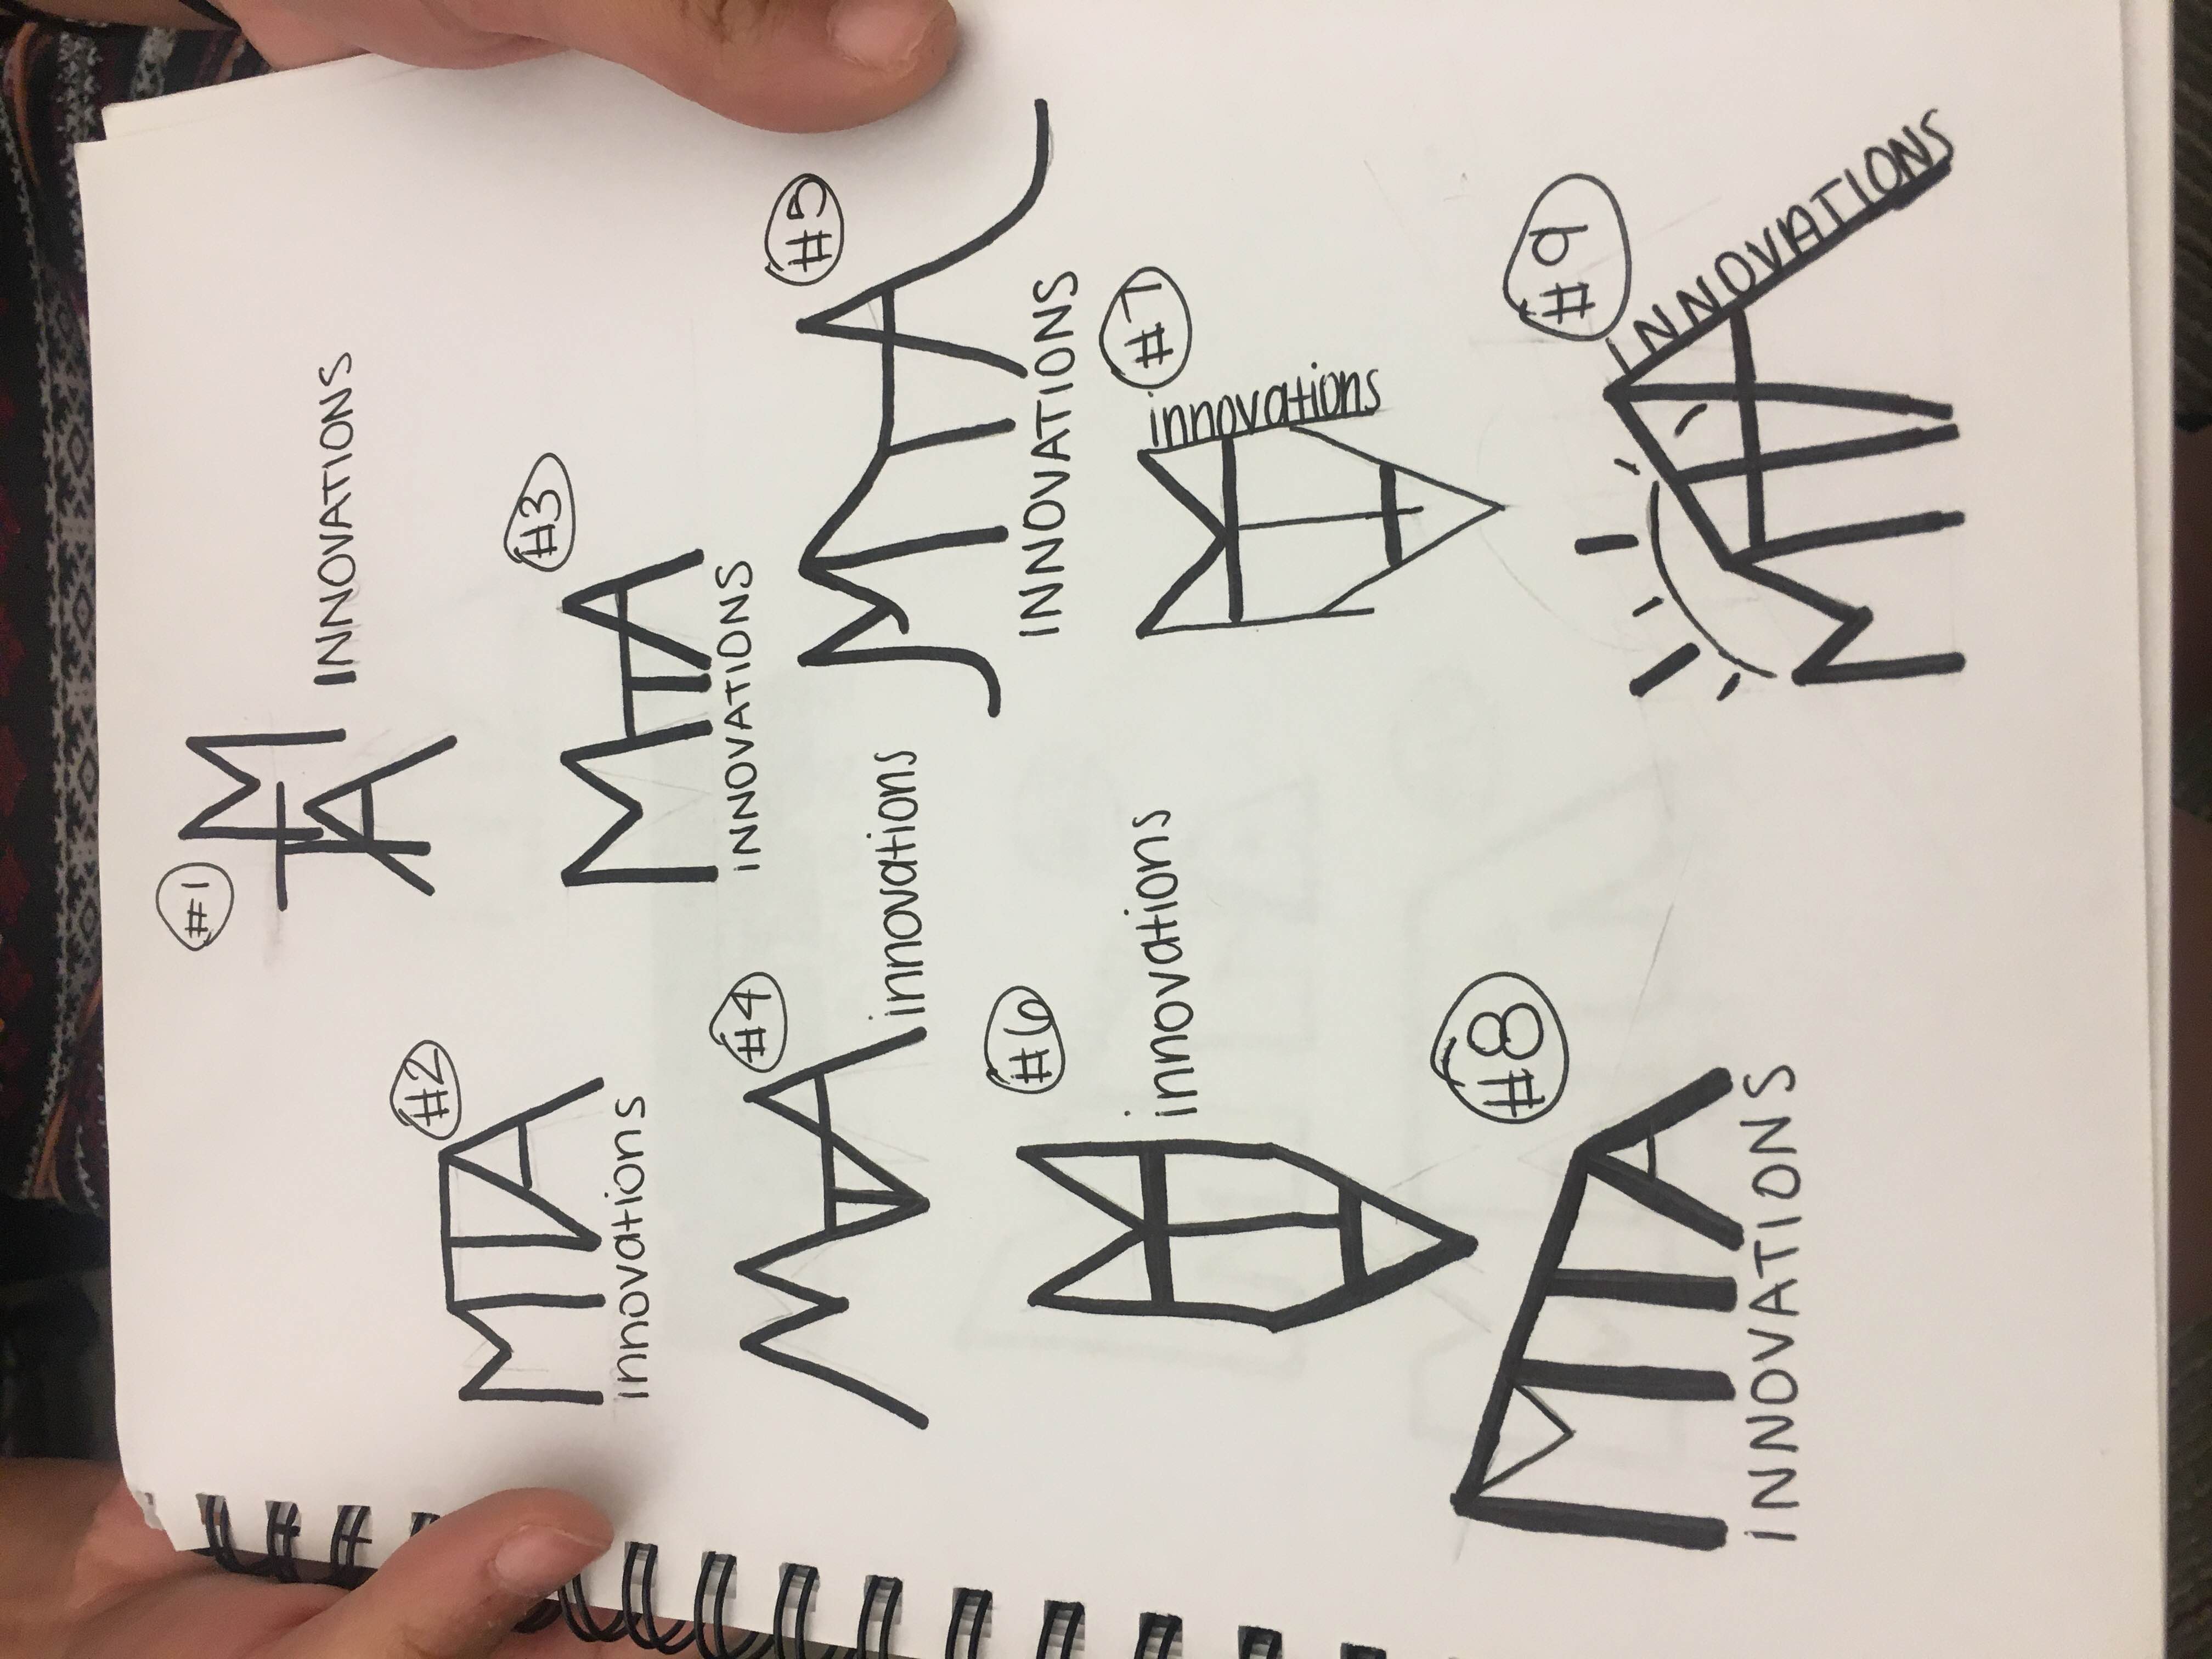 #1
MTA INNOVATIONS
#2
MTA
innovations
#3
MTA
INNOVATIONS
#4
MTA innovations
#5
MTA
INNOVATIONS
#6
MTA innovations
#7
MTA innovations
#8
MTA
INNOVATIONS
#9
MTA INNOVATIONS